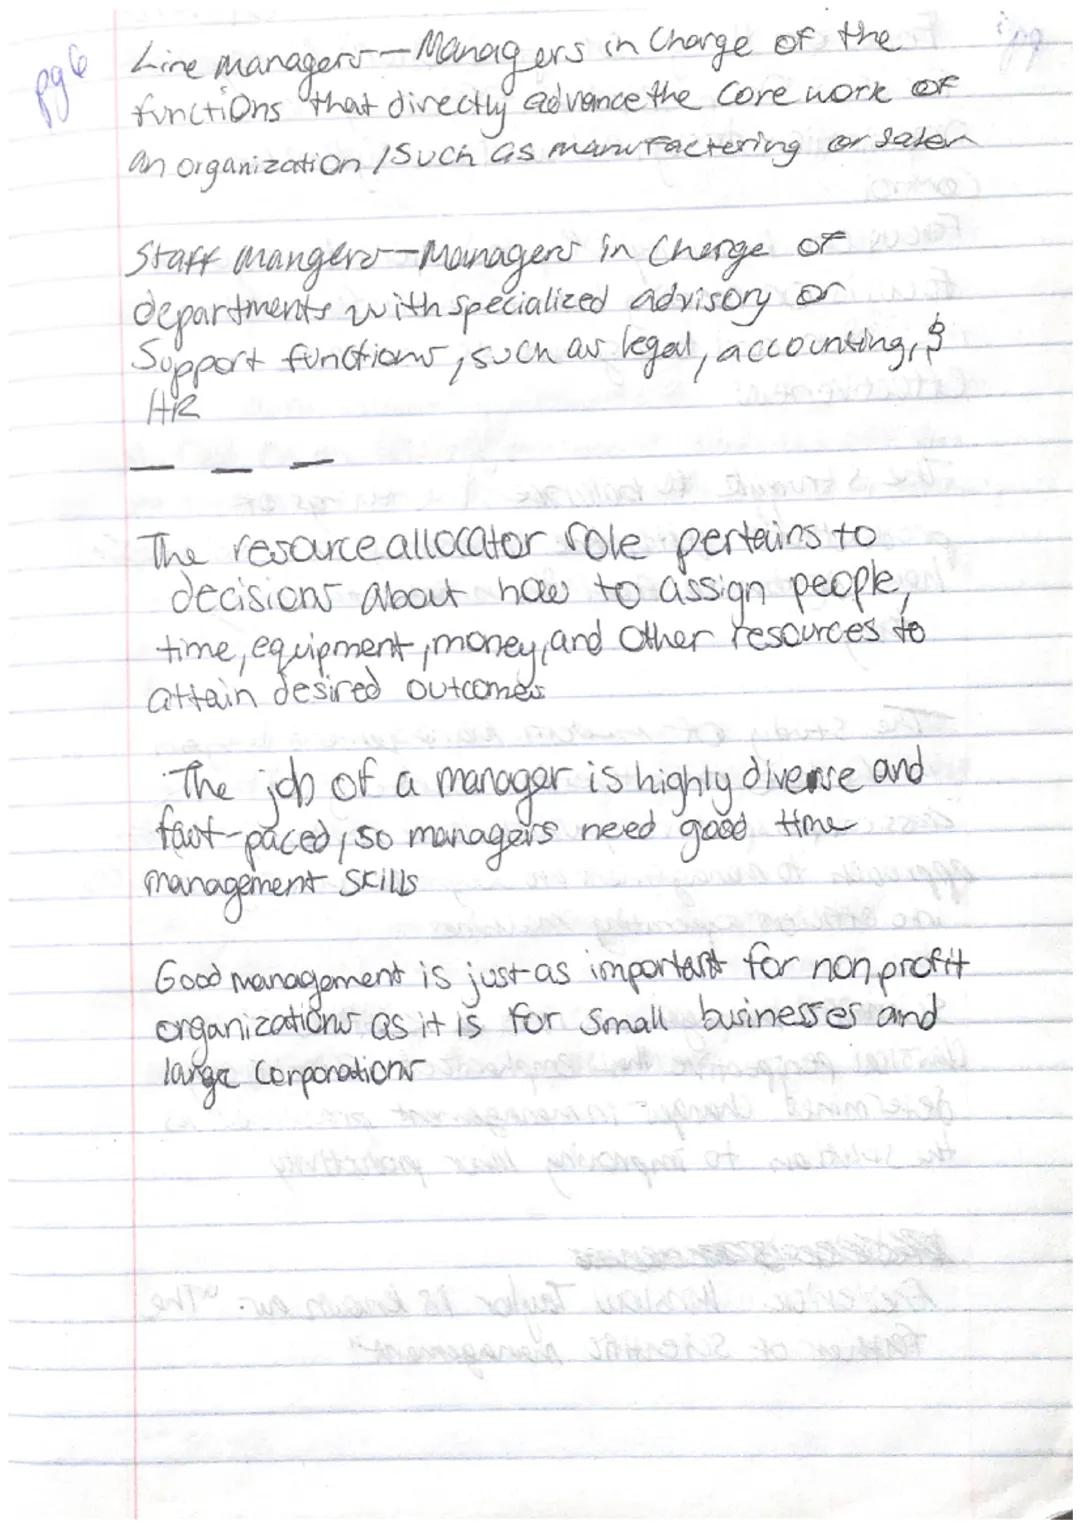 pg 6
Line managers - Managers in charge of the
functions that directly advance the core work of
an organization, such as manufacturing or sales
Staff mangers - Managers in charge of
departments with specialized advisory or
support functions, such as legal, accounting, &
HR
— — —
The resource allocator role pertains to
decisions about how to assign people,
time, equipment, money, and other resources to
attain desired outcomes
The job of a manager is highly diverse and
fast-paced, so managers need good time
management skills
Good management is just as important for non profit
organizations as it is for small businesses and
large corporations